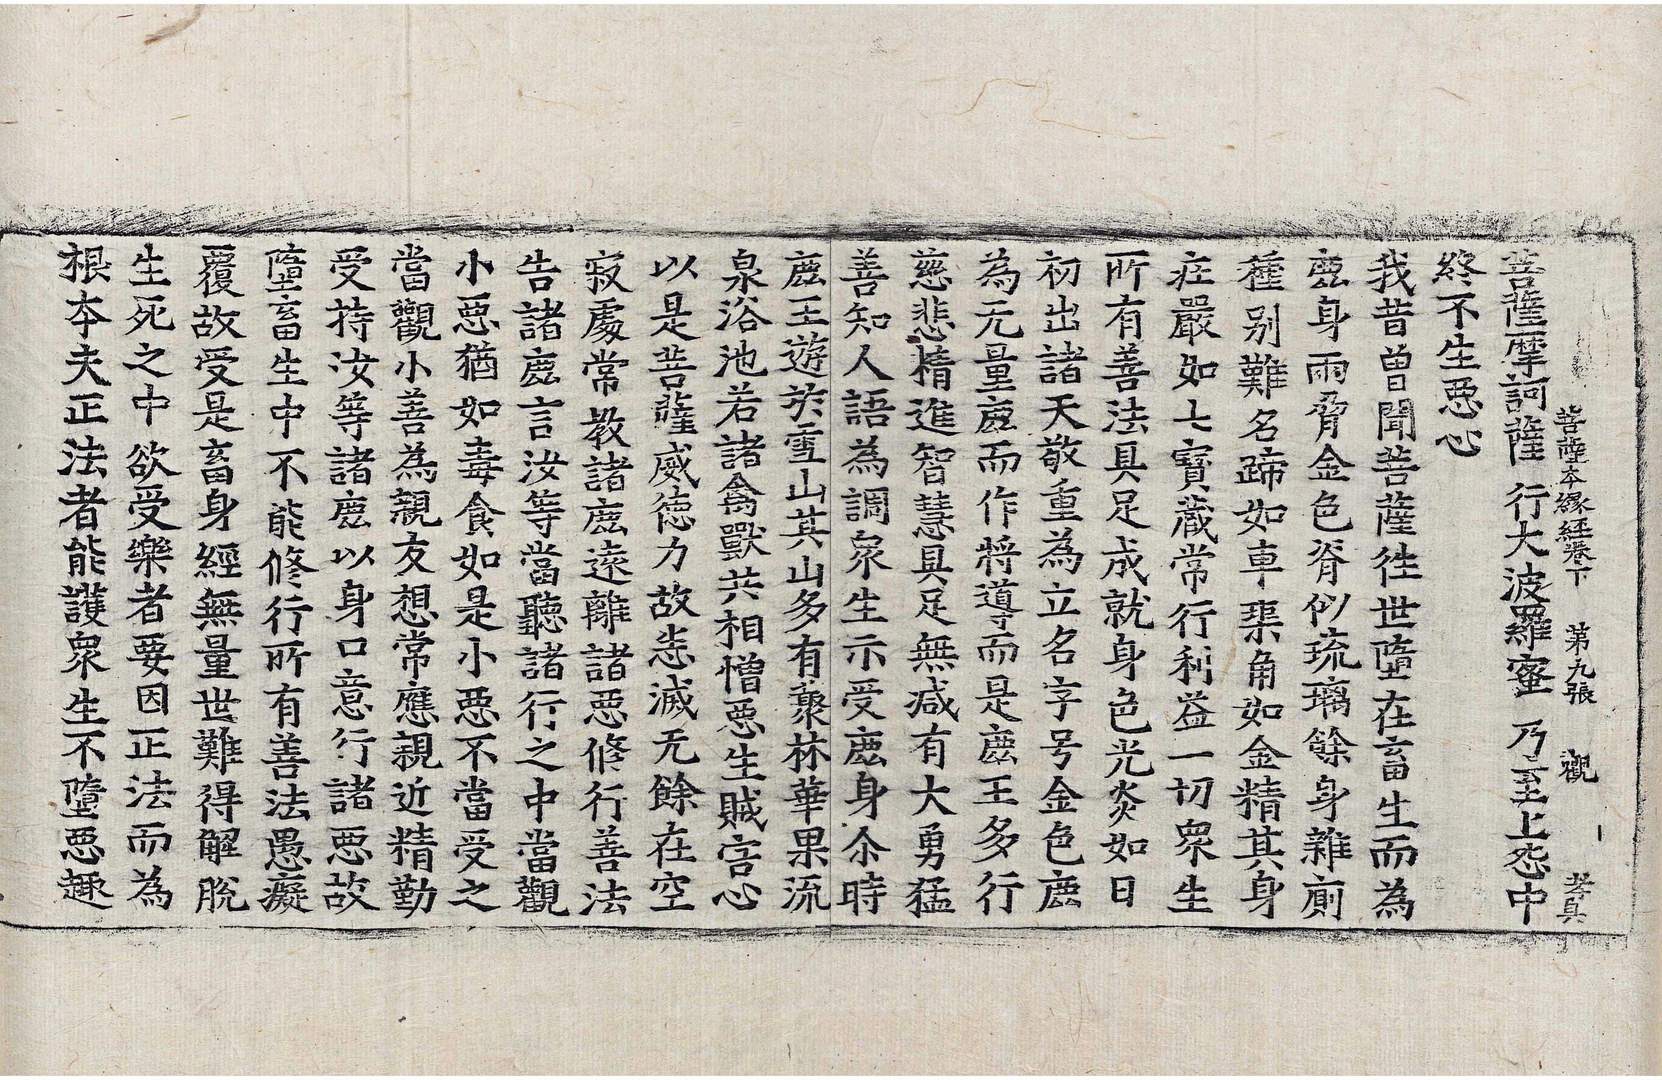 菩薩本縁経巻下 第九張 觀
菩薩摩訶薩 行大波羅蜜 乃至上惡中
終不生惡心
我昔曽聞菩薩徃世墮在畜生而為
鹿身兩脅金色脊似琉璃餘身雜廁
種别難名蹄如車𤦲角如金精其身
庄嚴如七寳蔵常行利益一切衆生
所有善法具足成就身色光炎如日
初出諸天敬重為立名字号金色鹿
為无量鹿而作将導而是鹿王多行
慈悲精進智慧具足無减有大勇猛
善知人語為調衆生示受鹿身尒時
鹿王遊於雪山其山多有藂林華果流
泉浴池若諸禽獸共相憎惡生賊害心
以是菩薩威徳力故悉滅无餘在空
寂處常教諸鹿逺離諸惡修行善法
告諸鹿言汝等當聽諸行之中當觀
小惡猶如毒食如是小惡不當受之
當觀小善為親友想常應親近精勤
受持汝等諸鹿以身口意行諸惡故
墮畜生中不能修行所有善法愚癡
覆故受是畜身經無量世難得解脫
生死之中欲受樂者要因正法而為
根本夫正法者能護衆生不墮惡趣